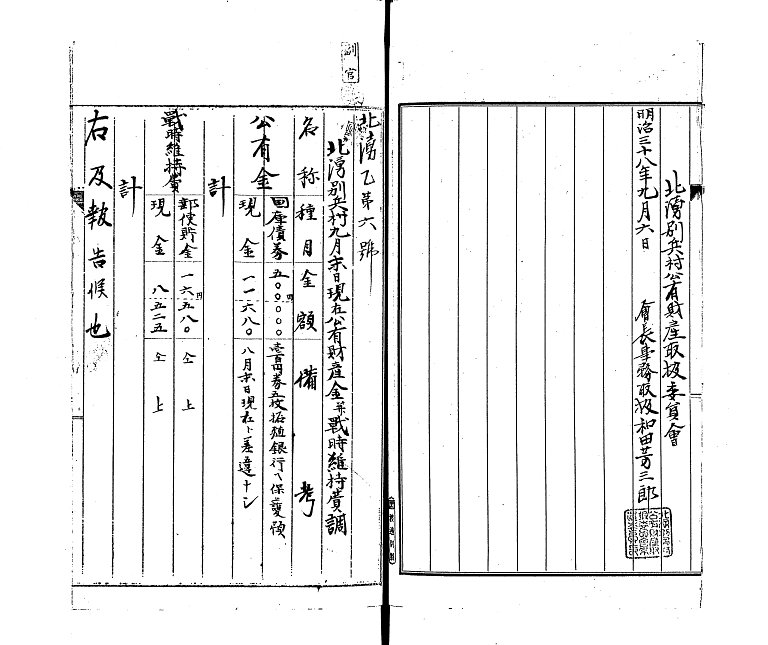 北湧別兵村公有財産取扱委員會
明治三十八年九月六日
會長事務取扱和田芳三郎
副官
北湧乙第六號
北湧別兵村九月末日現在公有財産金并戰時維持費調
名称 種目 金額 備考
公有金 国庫債券 五〇〇〇〇〇 壱百円券五枚拓殖銀行ヘ保護預
現金 一一六八〇 八月末日現在ト差違ナシ
計
戰時維持費 郵便貯金 一六五八〇 仝上
現金 八五二五 仝上
計
右及報告候也